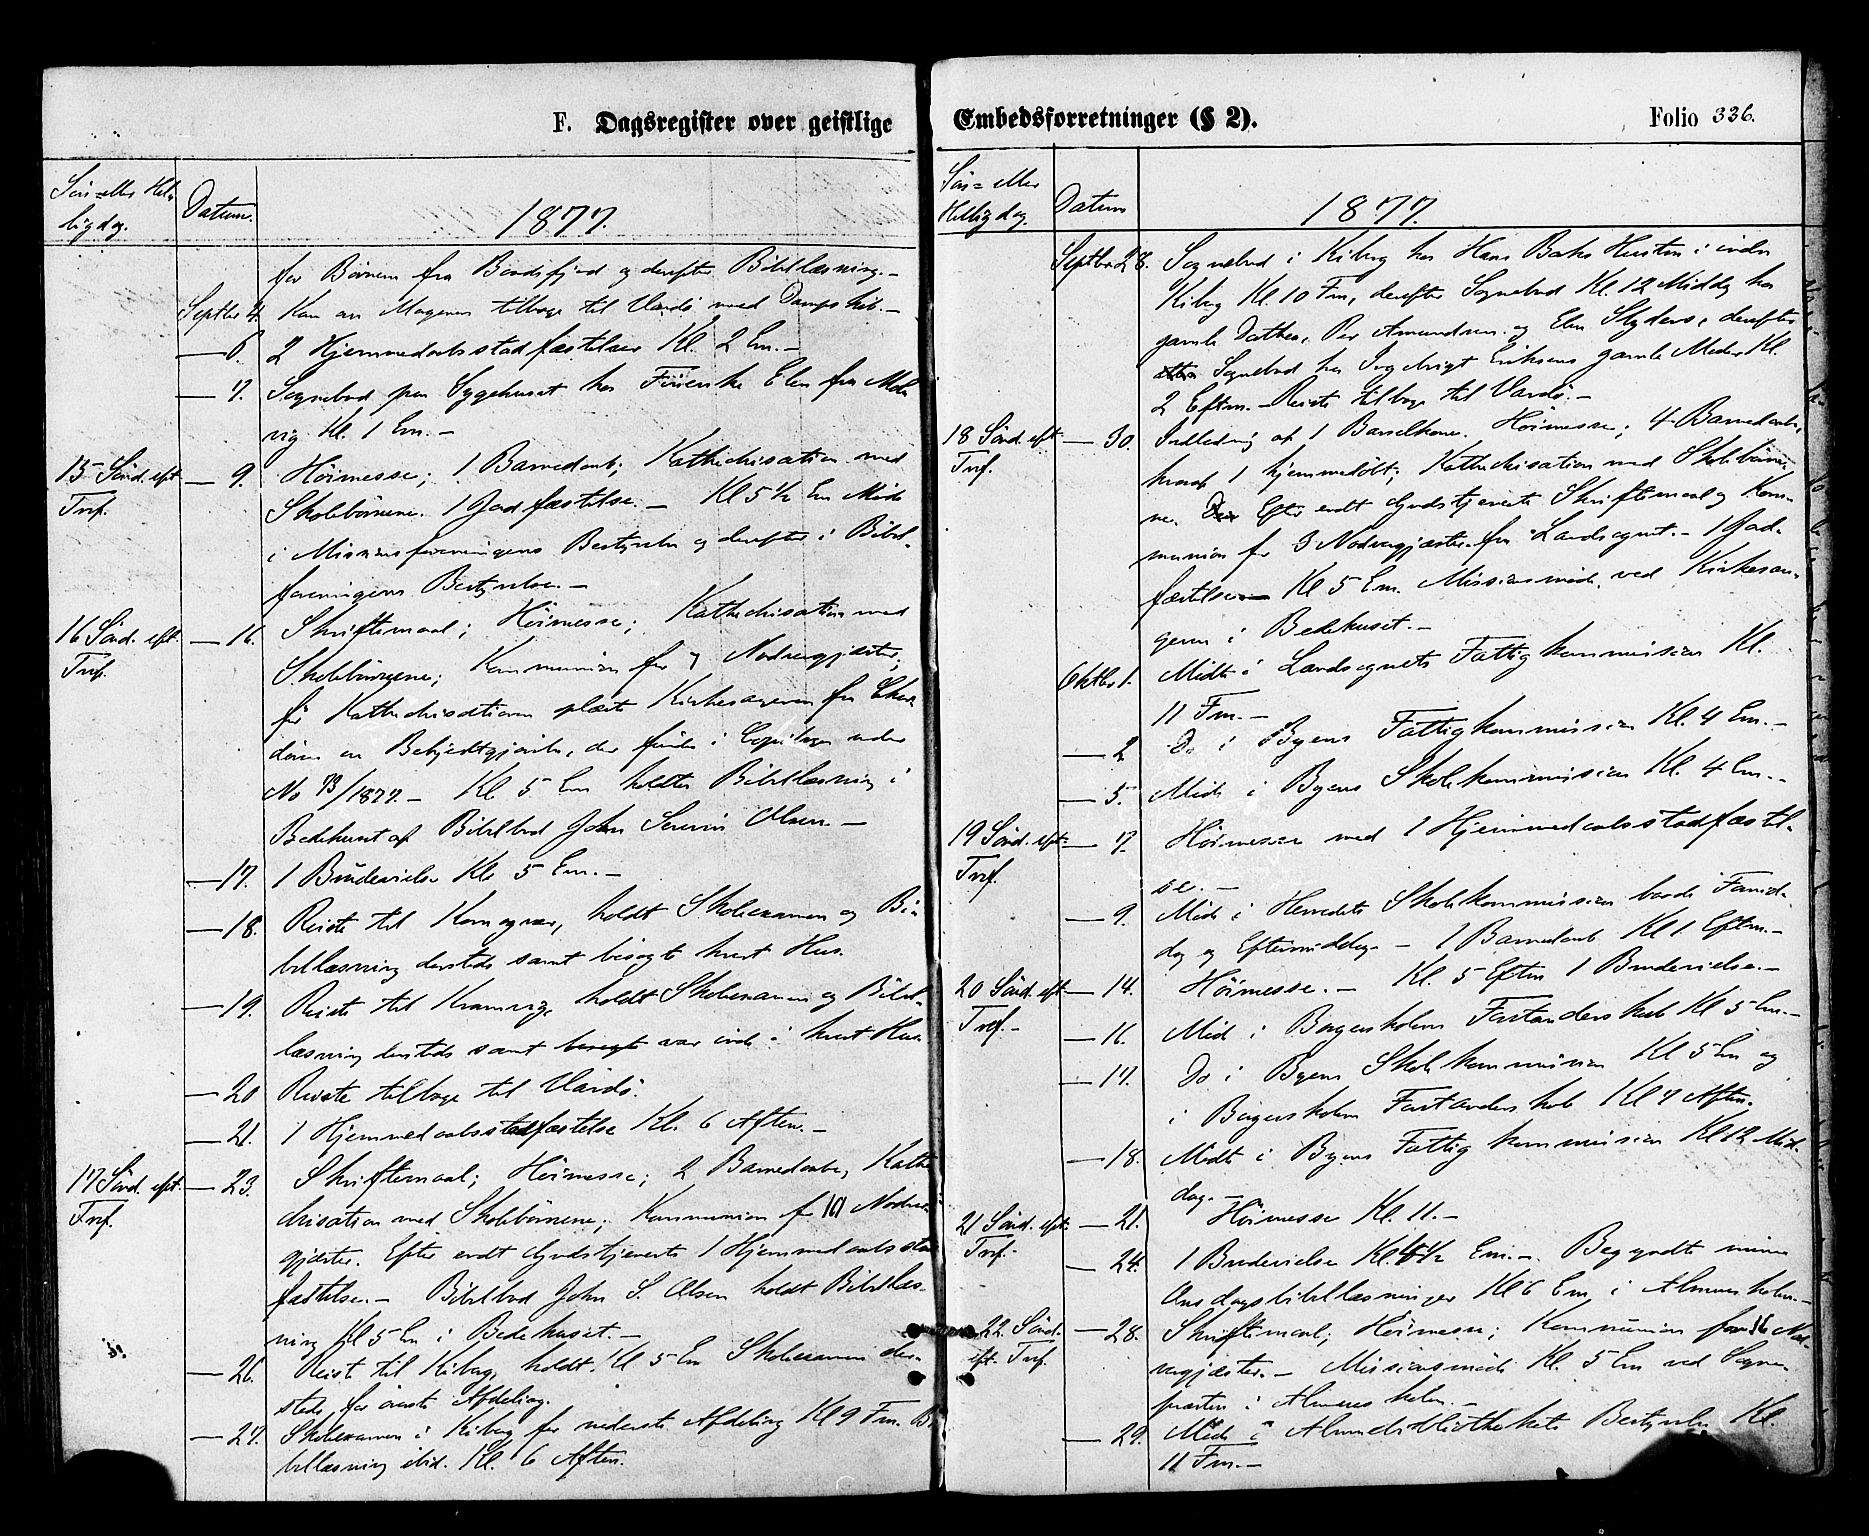 F. Dagsregister over geistlige
Søn- eller Hel-
ligdag.
Datum.
1877.
for Børnene fra Baadsfjord og derefter Bibellæsning.-
Septbr 4. Kom an Morgenen tilbage til Vardø med Dampskib.-
— 6. 2 Hjemmedaabsstadfæstelser Kl. 2 Em.-
— 7. Sognebud paa Sygehuset hos Elen fra Mak
vig Kl. 1 Em.-
15 Sönd. eft. — 9. Høimesse; 1 Barnedaab; Kathechisation med
Tref.
Skolebörnene. 1 Jordfæstelse.- Kl 5 1/2 Em Möde
i Missionsforeningens Bestyrelse og derefter i Bibel-
foreningens Bestyrelse.-
16 Sönd. eft. — 16. Skriftemaal; Høimesse; Kathechisation med
Tref.
Skolebørnene; Kommunion for 7 Nadvergjæster;
før Kathechisationen læste Kirkesangeren fra Chor-
døren en Bekjendtgjørelse, der findes i Copibogen under
No 73/1877.- Kl 5 Em holdtes Bibellæsning i
Bedehuset af Bibelbud John Severin Olsen.-
— 17. 1 Brudevielse Kl. 5 Em.-
— 18. Reiste til Komagvær, holdt Skoleexamen og Bi-
bellæsning dersteds samt besøgte hvert Hus.
— 19. Reiste til Kramvig, holdt Skoleexamen og Bibel-
læsning dersteds samt besøgte var inde i hvert Hus.
— 20 Reiste tilbage til Vardø.
— 21. 1 Hjemmedaabsstadfæstelse Kl. 6 Aften.-
17 Sönd. eft. — 23. Skriftemaal; Høimesse; 2 Barnedaabe, Kathe
Tref.
chisation med Skolebørnene; Kommunion for 10 Nadver-
gjæster. Efter endt Gudstjeneste 1 Hjemmedaabsstad
fæstelse.- Bibelbud John S. Olsen holdt Bibellæs-
ning Kl 5 Em i Bedehuset.-
— 26. Reist til Kiberg, holdt Kl 5 Em Skoleexamen der-
steds for øverste Afdeling.
— 27. Skoleexamen i Kiberg for nederste Afdeling Kl 9 Fm. Bi
bellæsning ibid. Kl. 6 Aften.
Embedsforretninger (§ 2).
Folio 336.
Søn- eller
Helligdag.
Datum
1877.
Septbr 28. Sognebud i Kiberg hos Hans Hustru i indre
Kiberg Kl. 10 Fm, derefter Sognebud Kl. 12 Middag hos
gamle Per Amundsen og Elen derefter
Sognebud hos Ingebrigt Eriksens gamle Moder Kl.
2 Eftm.- Reiste tilbage til Vardø.-
18 Sönd. eft. — 30. Indledning af 1 Barselkone. Høimesse; 4 Barnedaabe,
Tref.
hvoraf 1 hjemmedøbt; Kathechisation med Skolebørne-
ne. Efter endt Gudstjeneste Skriftemaal og Kom-
munion for 3 Nadvergjæster fra Landsognet.- 1 Jord-
fæstelse.- Kl 5 Em. Missionsmöde ved Kirkesan-
geren i Bedehuset.-
Oktbr 1. Mödte i Landsognets Fattigkommission Kl.
11 Fm.-
— 2 Do i Byens Fattigkommission Kl. 4 Em.-
— 5. Möde i Byens Skolekommission Kl. 4 Em.-
19 Sönd. eft. — 7. Høimesse med 1 Hjemmedaabsstadfæstel-
Tref.
se.-
— 9. Möde i Herredets Skolekommission baade Formid-
dag og Eftermiddag.- 1 Barnedaab Kl 1 Eftm.-
20 Sönd. eft. — 14. Høimesse.- Kl. 5 Eftm 1 Brudevielse.-
Tref.-
— 16. Möde i Borgerskolens Forstanderskab Kl 5 Em.-
— 17. Do i Byens Skolekommission Kl 5 Em og
i Borgerskolens Forstanderskab Kl 7 Aften.
— 18. Mödte i Byens Fattigkommission Kl 12 Mid-
dag.-
21 Sönd. eft. — 21. Høimesse Kl. 11.-
Tref.-
— 24. 1 Brudevielse Kl. 4 1/2 Em.- Begyndte mine
Onsdagsbibellæsninger Kl 6 Em i Almueskolen.-
22. Sönd. — 28. Skriftemaal; Høimesse; Kommunion for 16 Nad-
eft. Tref.
vergjæster.- Missionsmöde Kl. 5 Em ved Sogne-
præsten i Almueskolen.-
— 29. Möde i Almuebibliothekets Bestyrelse Kl.
11 Fm.-